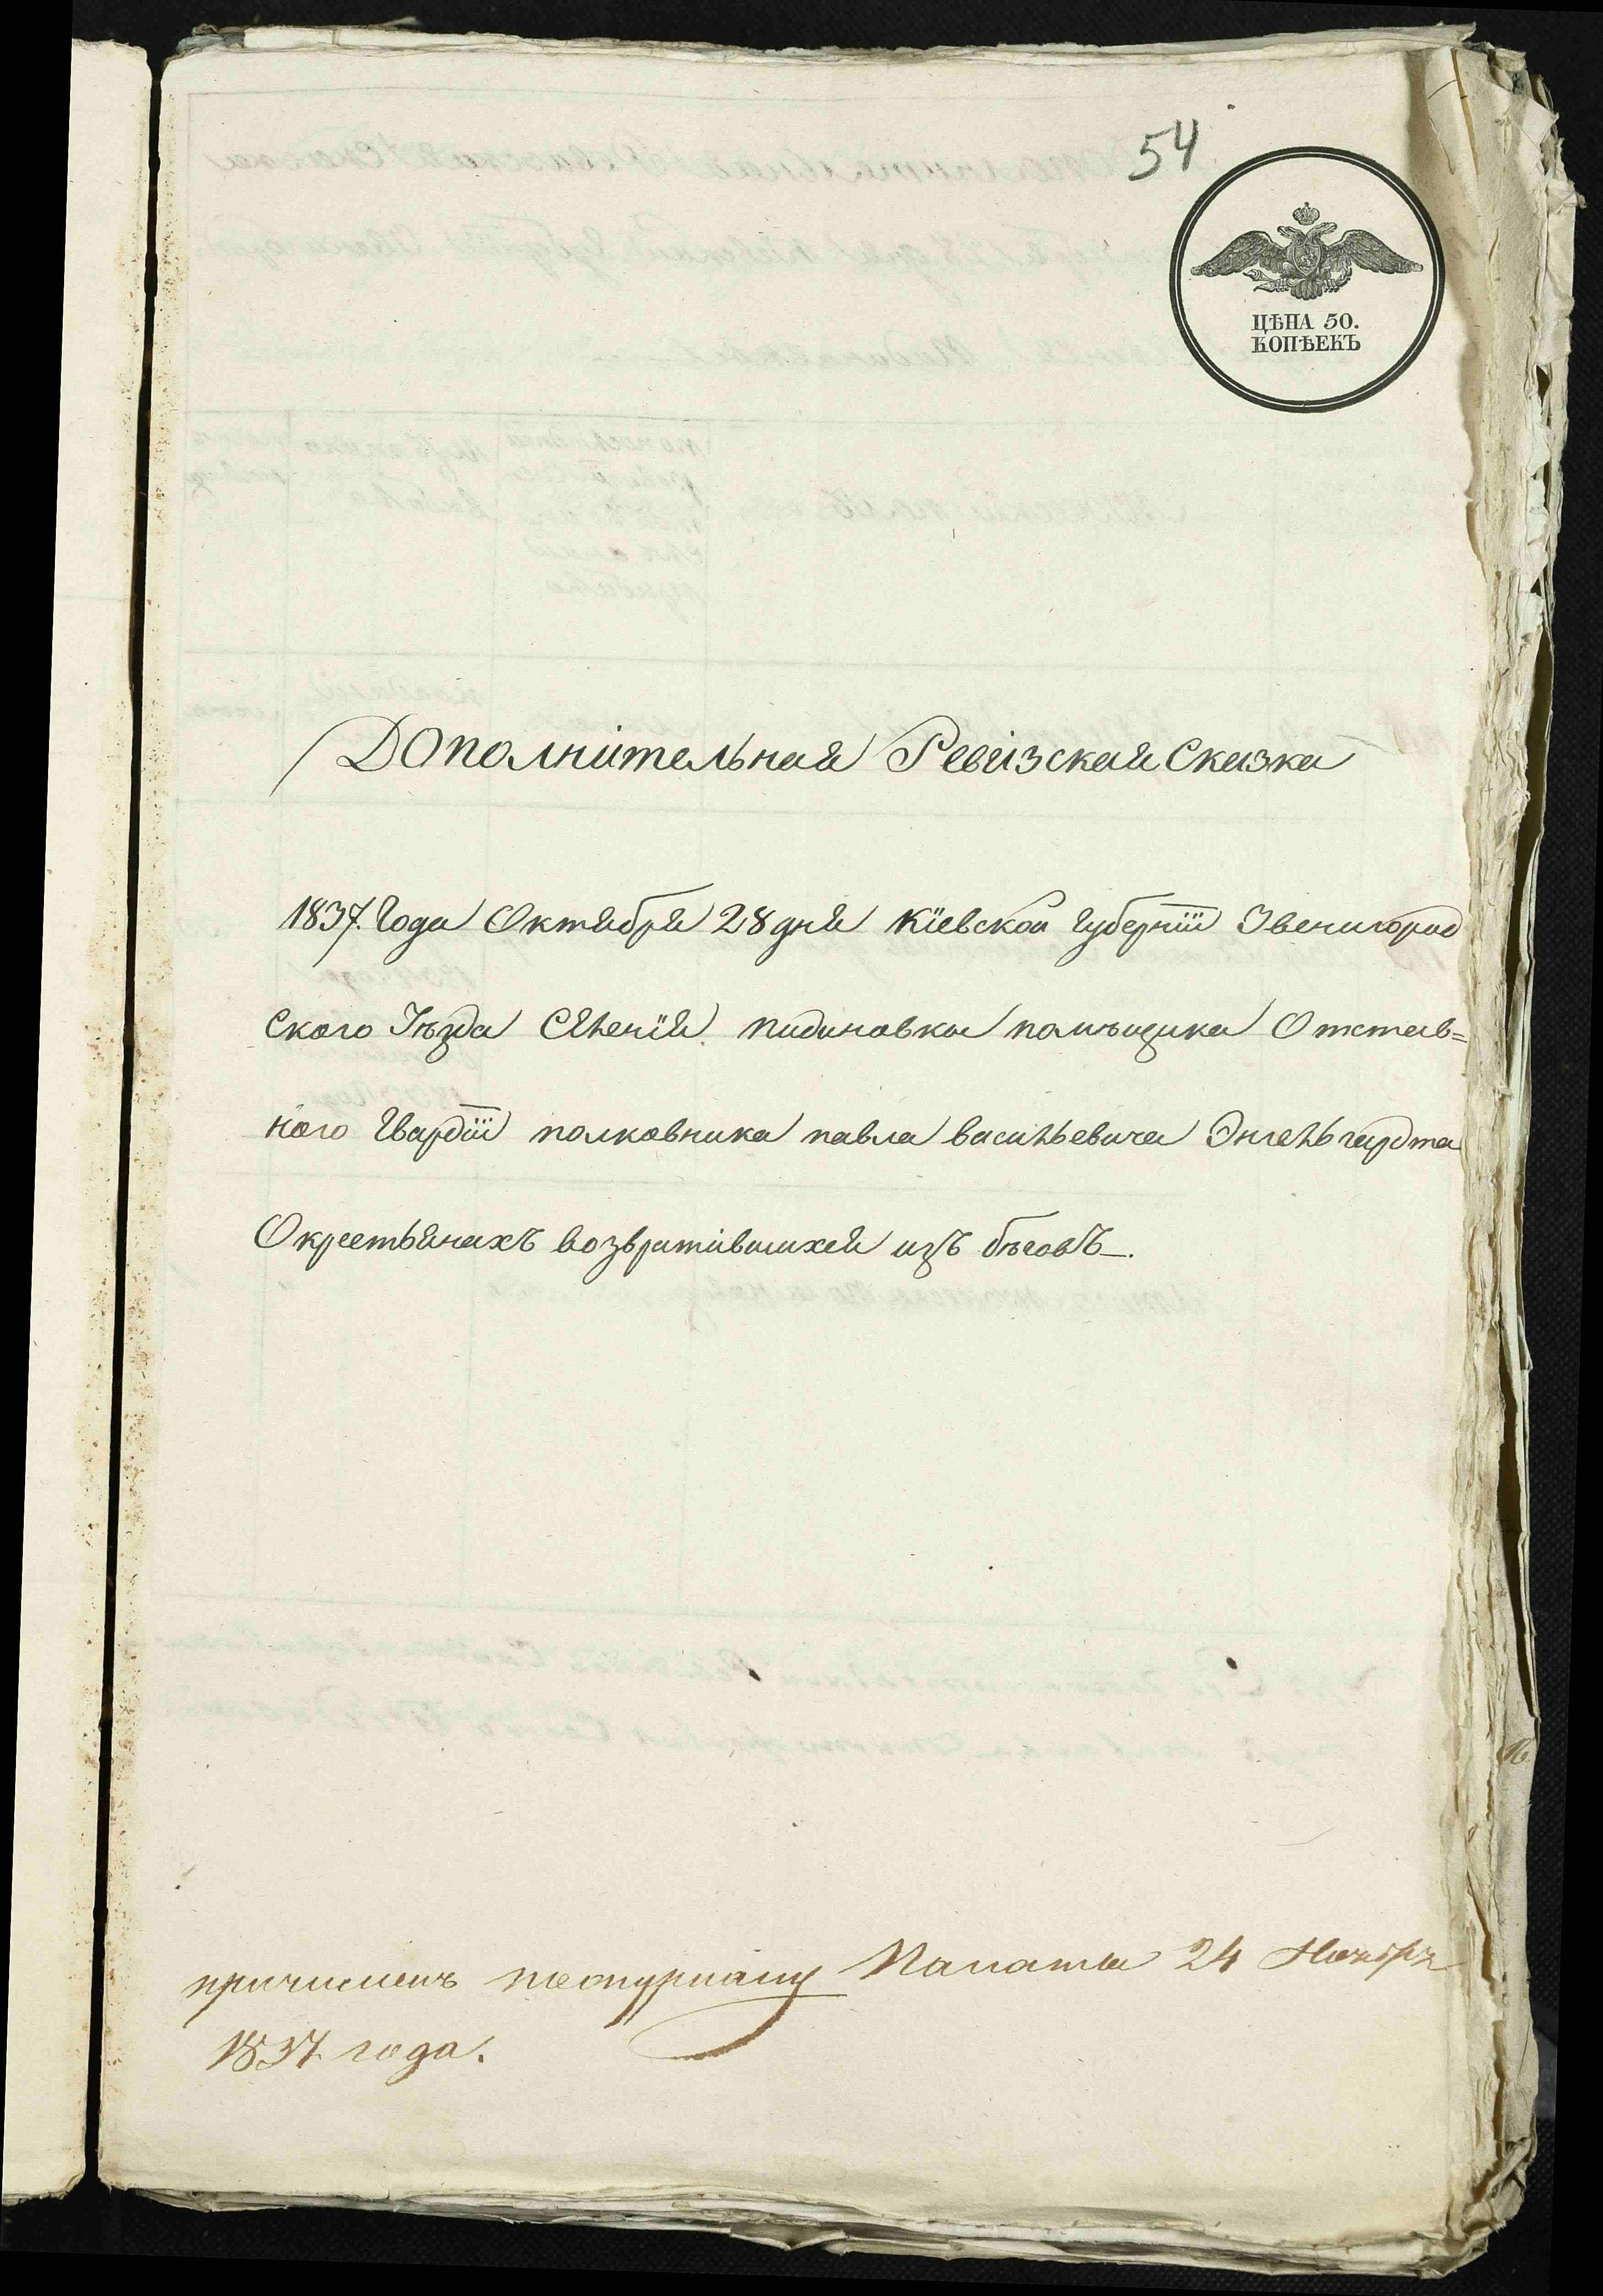 54
ЦѢНА 50.
КОПѢЕКЪ
Дополнительная Ревизская Сказка
1837. Года Октября 28 дня Кіевской Губерніи Звенигород
ского Уѣзда Селенія Пидиновки помѣщика Отстав=
ного Гвардіи полковника павла васильевича Энгельгардта
О крестьянахъ возвратившихся изъ бѣговъ.
причисленъ по журналу Палаты 24 Ноября
1837 года.